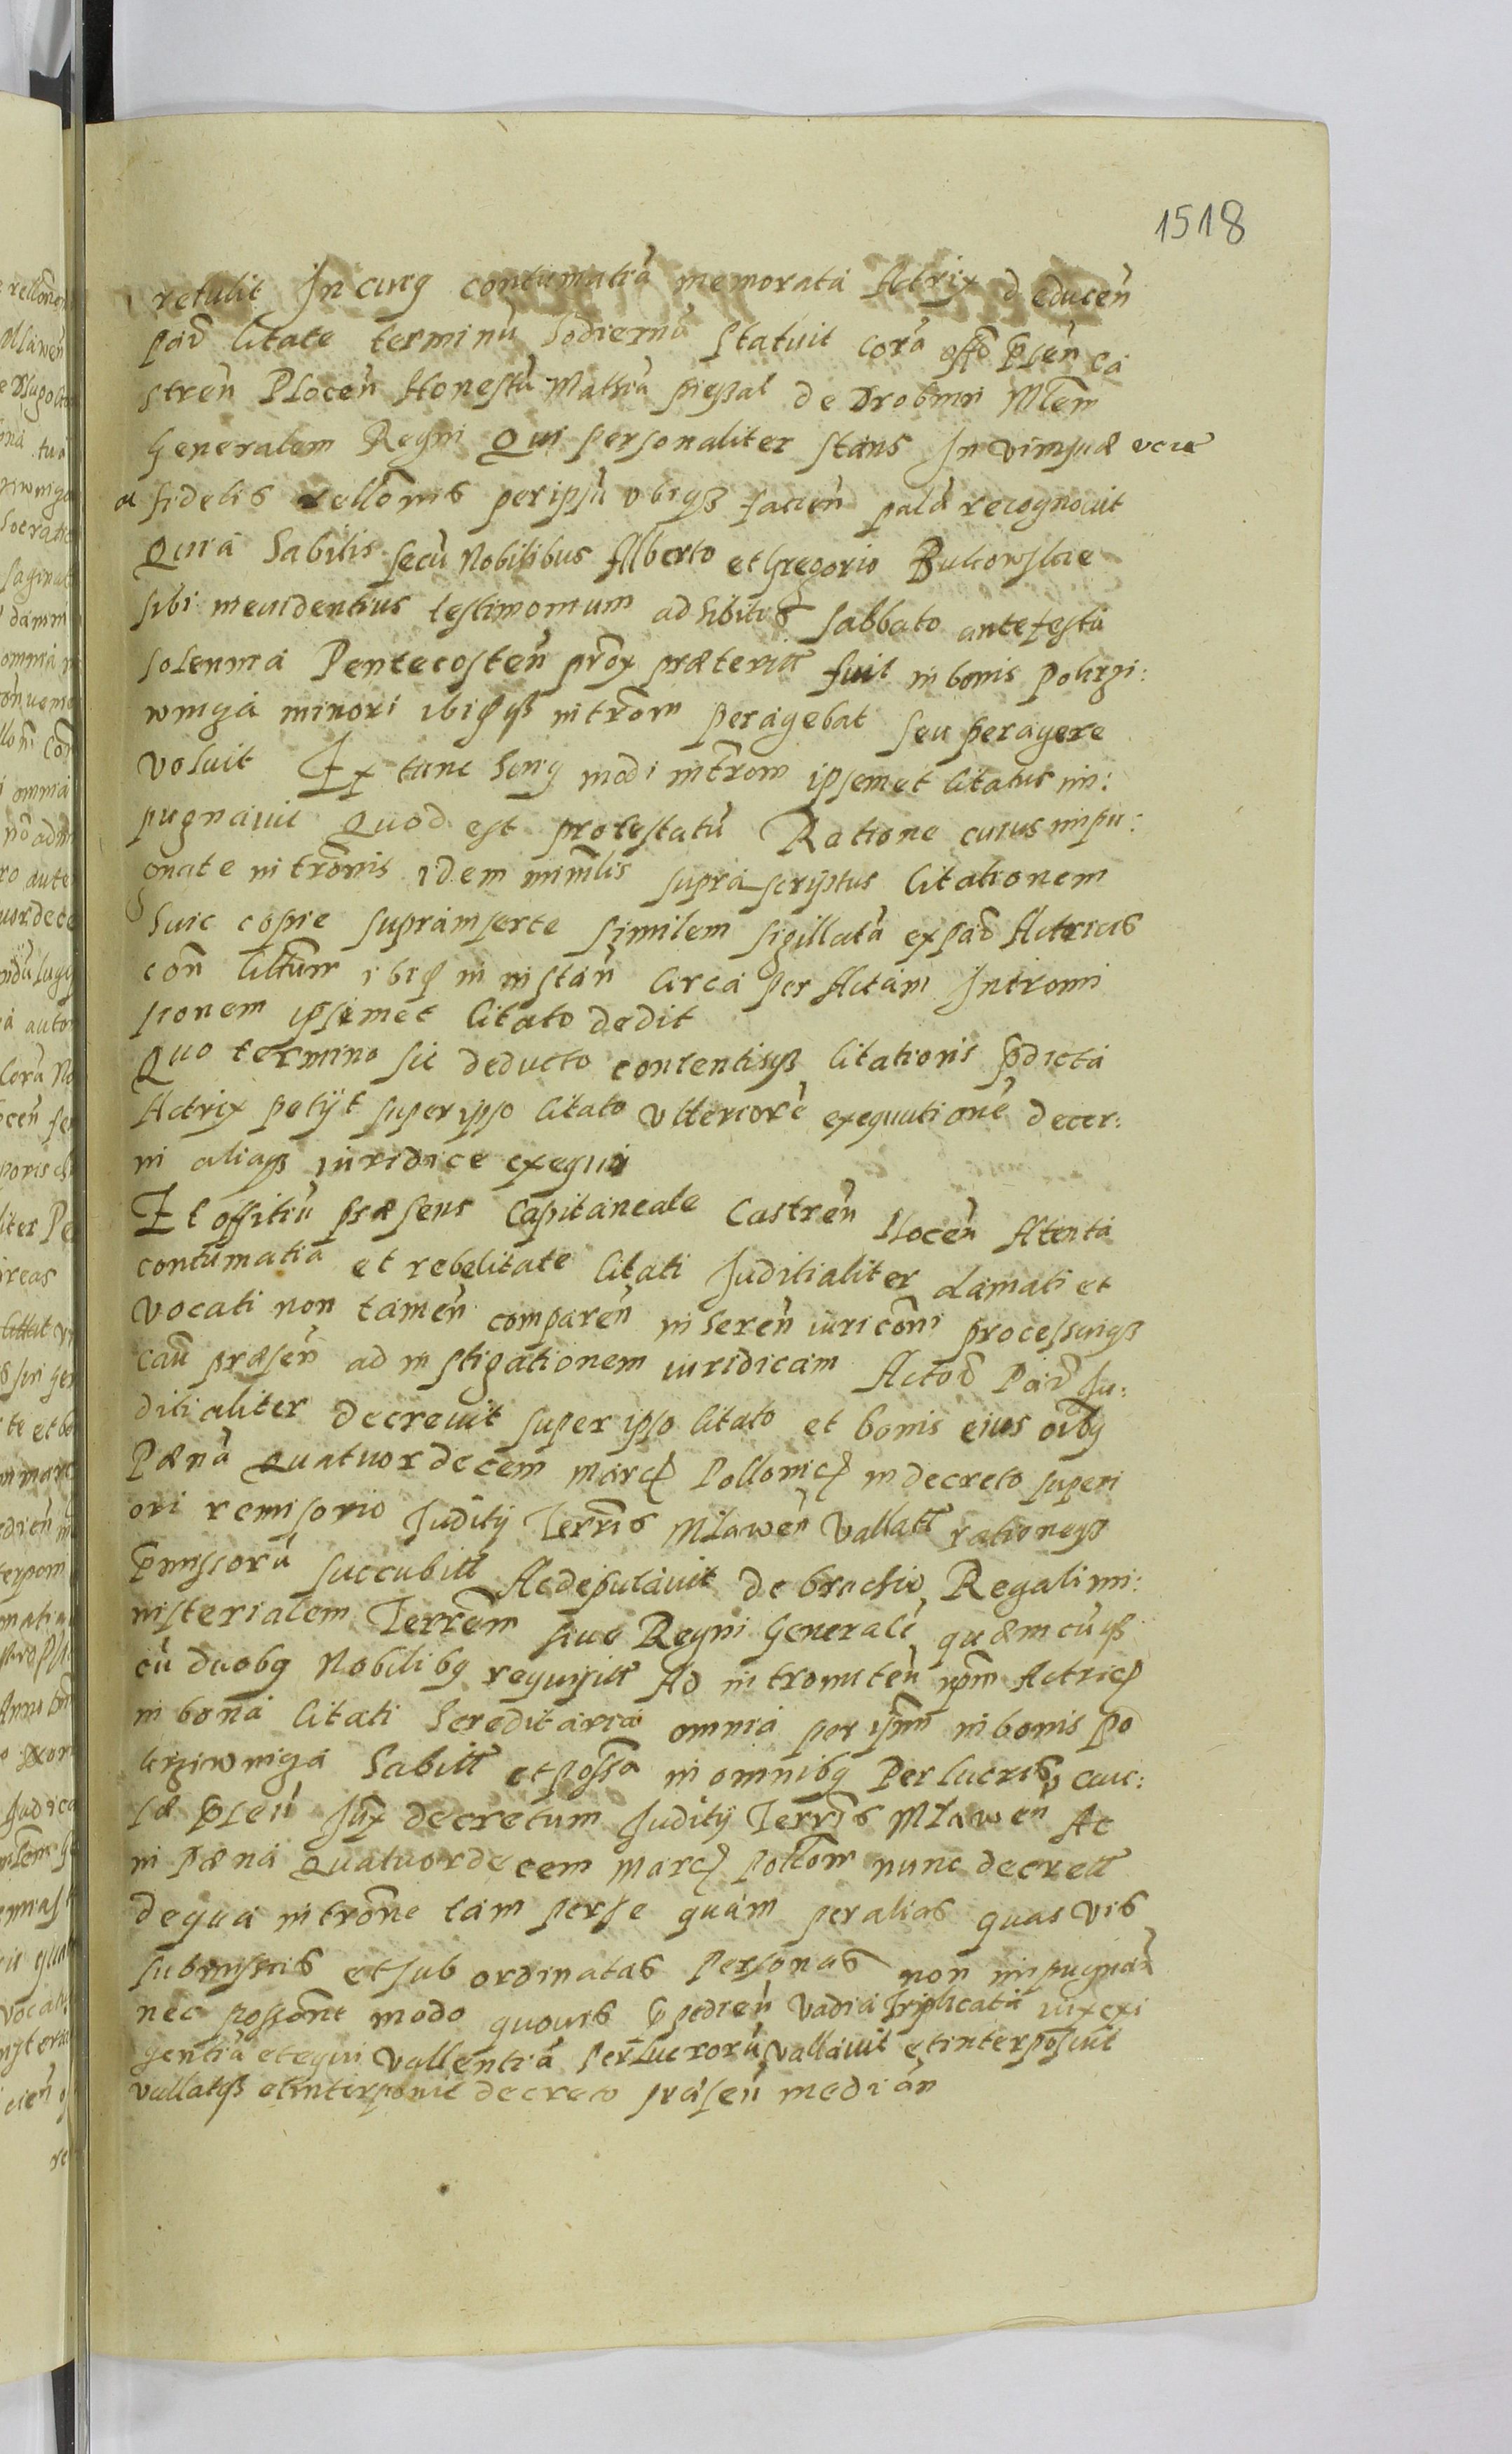 1518
retulit In cuig contumatiã memorata Actrix deducẽn
pad Citate terminũ hodiernũ Statuit corã offo pñti ca
strẽn Plocẽn Honestũ Mathiã pieszal de Drobnin Mlem
Generalem Regni Qui personaliter stans In vimsuæ veræ
et fidelis rellonis per ipsũ ubiqz faciẽn palã recognovit
Quia habilis secũ Nobilibus Alberto et Gregorio Bukowskie
sibi in evidentius testimonium adhibitis Sabbato ante festa
solennia Pentecostẽn prox præteritt fuit in bonis Pokrzi:
wniga minori ibiqz intrõm peragebat seu peragere
voluit Ex tunc hung modi intrõm ipsemet Citatus im:
pugnavit Quod est protestatũ Ratione cuius impu:
gnate intrõnis idem minlis suprascriptus Citationem
huic copie suprainserte similem sigillatã ex pad Actricis
con Cittum ibiq in instãn circa per Actam Intromi
sionem ipsimet Citato dedit
Quo termino sic deducto contentisqz Citationis pdicta
Actrix petijt super ipso Citato Ulteriorẽ exequutionẽ decer:
ni aliaqz iuridice exequi
Et offitiũ præsens Capitaneale Castrẽn Plocẽn Atenta
contumatia et rebelitate Citati Juditialiter clamati et
vocati non tamẽn comparẽn inherẽn iuri coni processuiqz
cau præsẽn ad instigationem iuridicam Actoo Pad Ju:
ditialiter decrevit super ipso Citato et bonis eius oibg
Pænã Quatuordecem marc Pollonic in decreto superi
ori remisorio Juditij Terris Mlawẽn Vallatt rationeqz
pmissorũ succubitt Ac deputavit de brachio Regali mi:
nisterialem Terrem sive Regni Generalẽ quæmcũqz
cũ duobg Nobilibg requisitt Ad intromitẽn ipm Actric
in bona Citati hereditaria omnia per ipm in bonis Po
krziwniga habitt et possa in omnibg Per lucris cau:
sæ pñti Jux decretum Juditij Terris Mlawẽn Ac
in Pæna Quatuordecem marc pollon nunc decrett
de qua intrõne tam per se quam per alias quas vis
submissas et sub ordinatas Personas non impugnad
nec possone modo quovis pedien Vadia triplicata iux exi
gentiã et equi vallentiã Per Lucrorũ vallavit et interposuit
vallatqz et interponit decreto præsẽn median